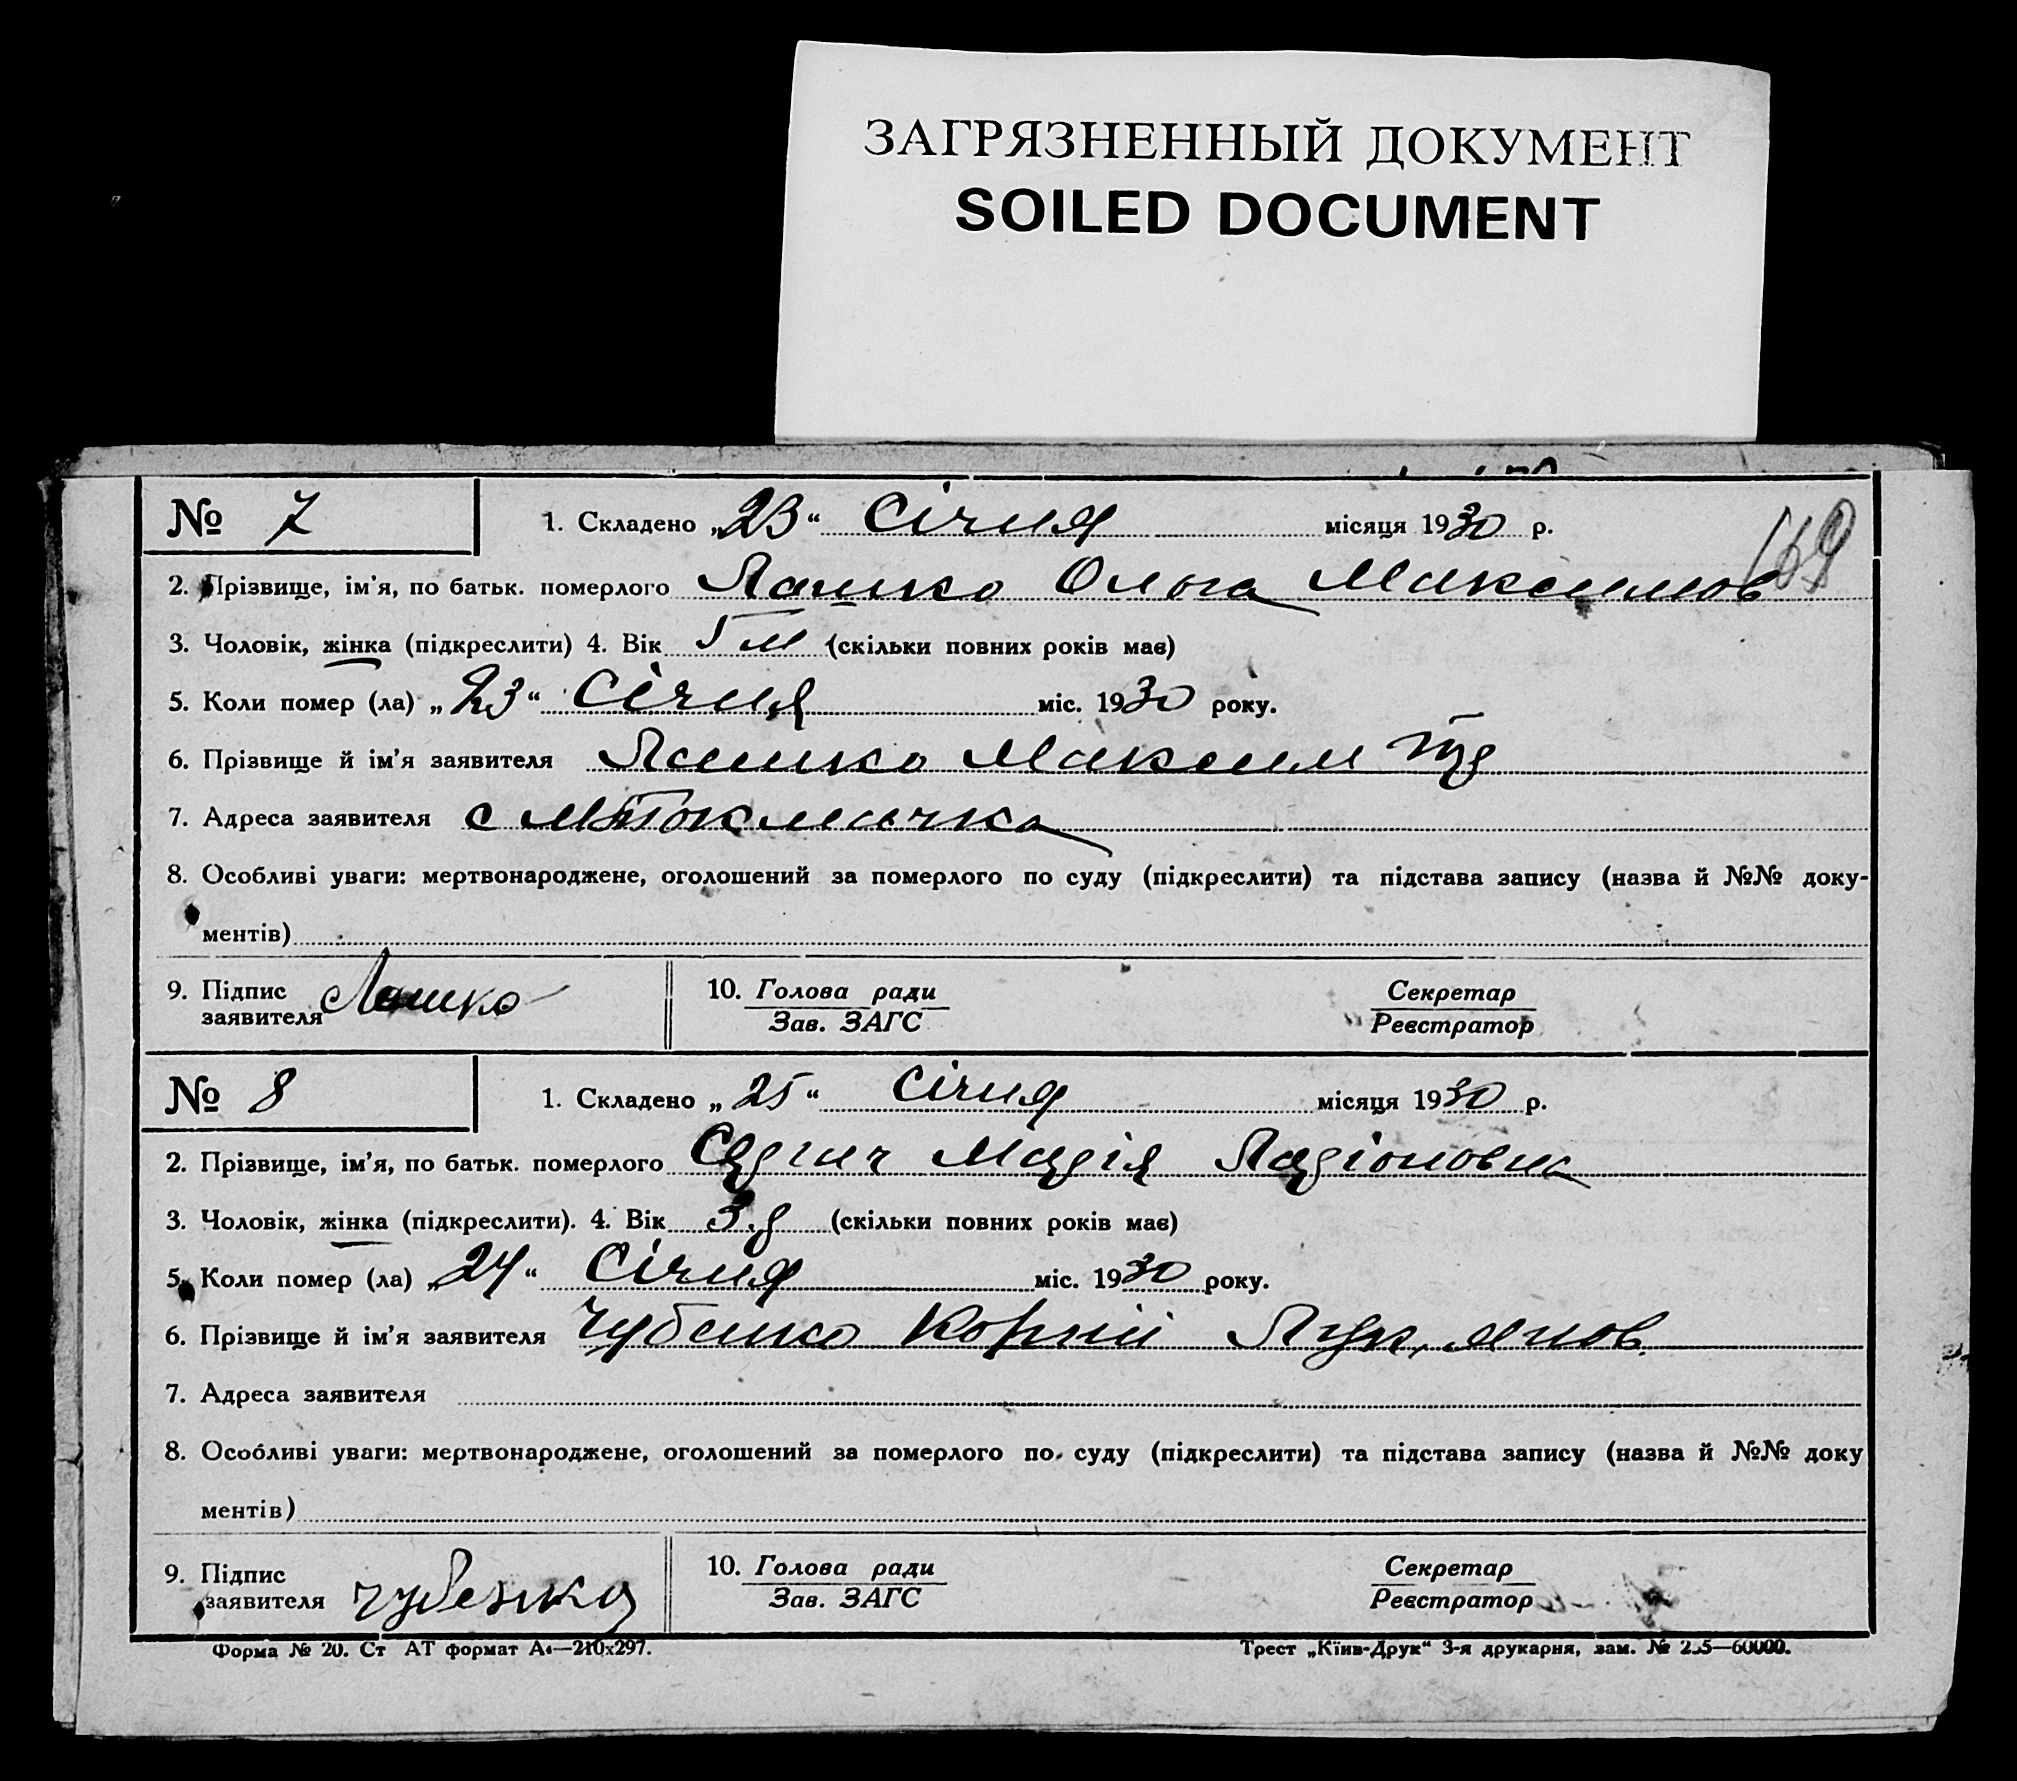 ЗАГРЯЗНЕННЫЙ ДОКУМЕНТ
SOILED DOCUMENT
№ 7
1. Складено „23“ Січня місяця 1930 р.
169
2. Прізвище, ім'я, по батьк. померлого Лашко Ольга Максимов
3. Чоловік, жінка (підкреслити) 4. Вік (скільки повних років має)
5. Коли помер (ла) „23“ Січня міс. 1930 року.
6. Прізвище й ім'я заявителя Лашко Максим
7. Адреса заявителя с МТокмачка
8. Особливі уваги: мертвонароджене, оголошений за померлого по суду (підкреслити) та підстава запису (назва й №№ доку-
ментів)
9. Підпис заявителя Лашко
10. Голова ради Секретар
Зав. ЗАГС Реєстратор
№ 8
1. Складено „25“ Січня місяця 1930 р.
2. Прізвище, ім'я, по батьк. померлого Марія Ларіоновна
3. Чоловік, жінка (підкреслити). 4. Вік 3 (скільки повних років має)
5. Коли помер (ла) „24“ Січня міс. 1930 року.
6. Прізвище й ім'я заявителя Чубенко Корній Лук'янов
7. Адреса заявителя
8. Особливі уваги: мертвонароджене, оголошений за померлого по суду (підкреслити) та підстава запису (назва й №№ доку
ментів)
9. Підпис заявителя Чубенко
10. Голова ради Секретар
Зав. ЗАГС Реєстратор
Форма № 20. Ст АТ формат А4—210х297.
Трест „Київ-Друк“ 3-я друкарня, зам. № —60000.